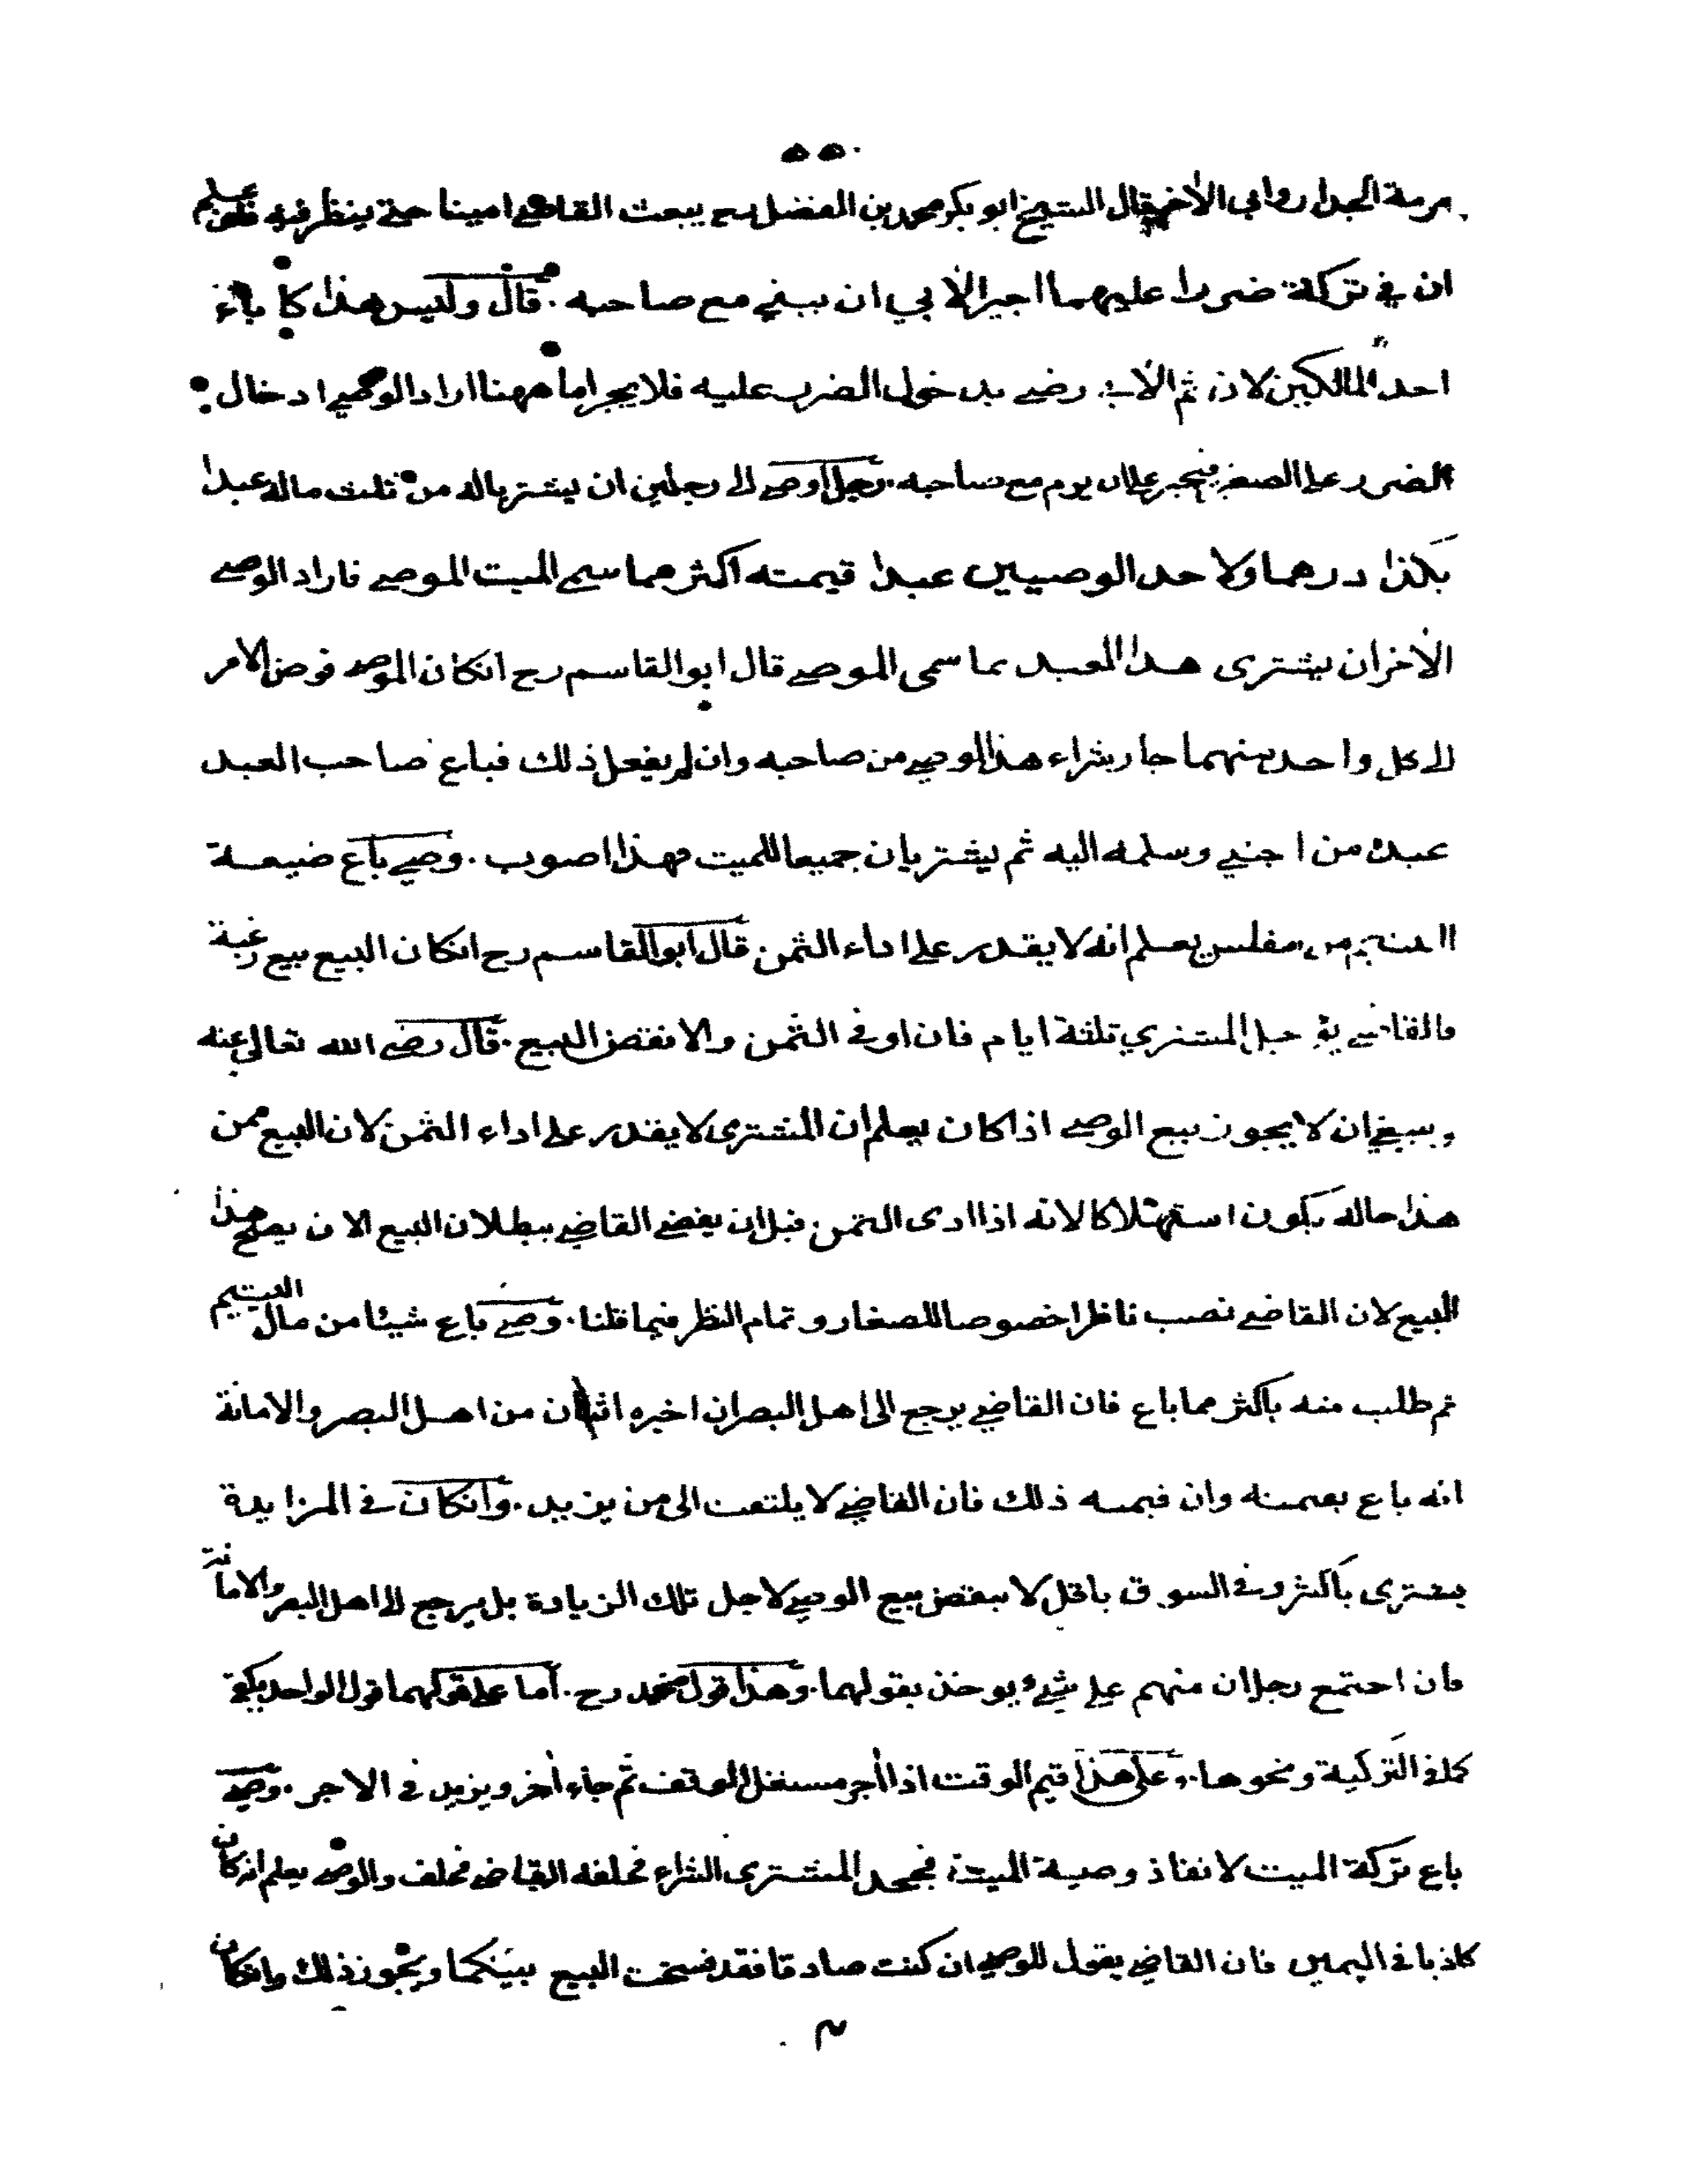 ۵۵۰
مرمة الجدار وابى الأخر قال الشيخ ابو بكر محمد بن الفضل رح يبعث القاضي امينا حتى ينظر فيه فان علم
ان في تركة ضررا عليهما اجبر الأبي ان يبني مع صاحبه . قال وليس هذا كاباء
احد المالكين لان ثم الأبي رضي بدخول الضرر عليه فلا يجبر اما ههنا اراد الوصي ادخال
الضرر على الصغير فيجبر على ان يرم مع صاحبه . رجل اوصى الى رجلين ان يشتريا له من ثلث ماله عبدا
بكذا درهما ولاحد الوصيين عبدا قيمته اكثر مما سمى الميت الموصي فاراد الوصي
الأخر ان يشترى هذا العبد بما سمى الموصي قال ابو القاسم رح انكان الموصي فوض الامر
الى كل واحد منهما جاز شراء هذا الوصي من صاحبه وان لم يفعل ذلك فباع صاحب العبد
عبده من اجنبي وسلمه اليه ثم يشتريان جميعا للميت فهذا اصوب . وصي باع ضيعة
اليتيم من مفلس يعلم انه لا يقدر على اداء الثمن قال ابو القاسم رح انكان البيع بيع رغبة
فالقاضي يؤجل المشتري ثلثة ايام فان اوفى الثمن والا نقض البيع . قال رضي الله تعالى عنه
وينبغي ان لا يجوز بيع الوصي اذا كان يعلم ان المشترى لا يقدر على اداء الثمن لان البيع ممن
هذا حاله يكون استهلاكا لانه اذا ادى الثمن قبل ان يقضي القاضي ببطلان البيع الان يصح هذا
البيع لان القاضي نصب ناظرا خصوصا للصغار وتمام النظر فيما قلنا . وصي باع شيئا من مال اليتيم
ثم طلب منه باكثر مما باع فان القاضي يرجع الى اهل البصر ان اخبره اثنان من اهل البصر والامانة
انه باع بقيمته وان قيمته ذلك فان القاضي لا يلتفت الى من يزيد . وانكان في المزايدة
يشترى باكثر وفي السوق باقل لا ينقض بيع الوصي لاجل تلك الزيادة بل يرجع الى اهل البصر والامانة
فان اجتمع رجلان منهم على شيء يوخذ بقولهما . وهذا قول محمد رح . اما على قولهما قول الواحد يكفي
كما في التزكية ونحوها . وعلى هذا قيم الوقف اذا أجر مستغل الوقف ثم جاء أخر ويزيد في الاجر . وصي
باع تركة الميت لانفاذ وصية الميت فجحد المشترى الشراء فحلفه القاضي فحلف والوصي يعلم انه كان
كاذبا في اليمين فان القاضي يقول للوصي ان كنت صادقا فقد فسخت البيع بينكما ويجوز ذلك وانكان